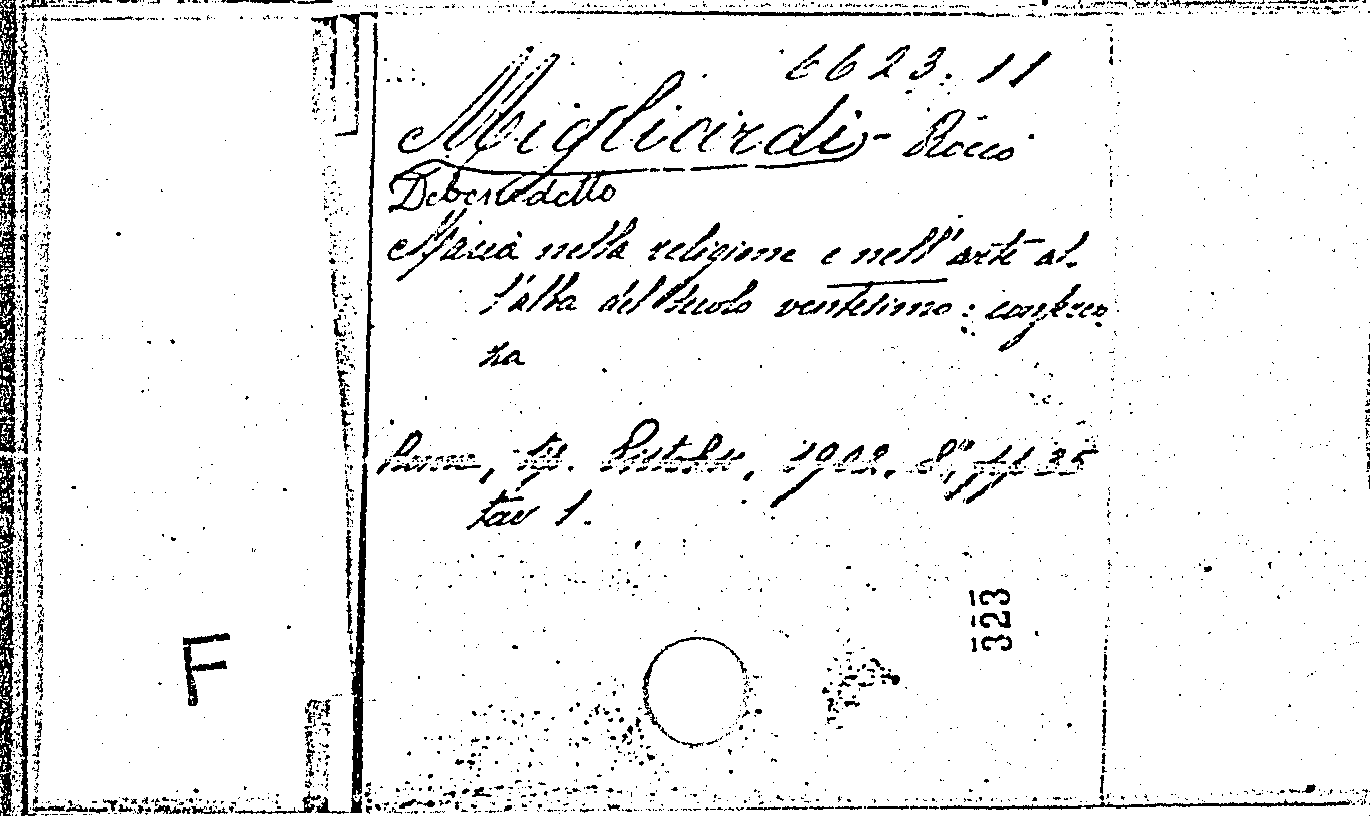 6623.11
Migliardi - Rocco
Debenedetto
Maria nella religione e nell'arte al-
l'alba del secolo ventesimo: conferen
za
Roma, tip. 1902. 8°, pp 35
tav 1.
323
F